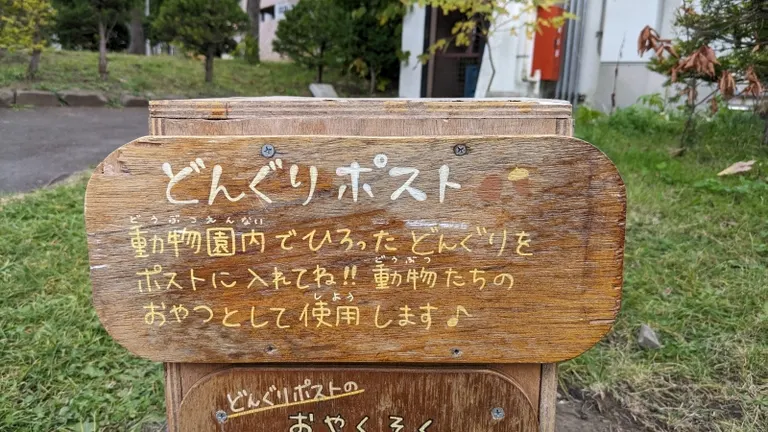 どんぐりポスト
どうぶつえんない
動物園内でひろったどんぐりを
ポストに入れてね!! 動物たちの
どうぶつ
おやつとして使用します♪
しよう
どんぐりポストの
おやくそく